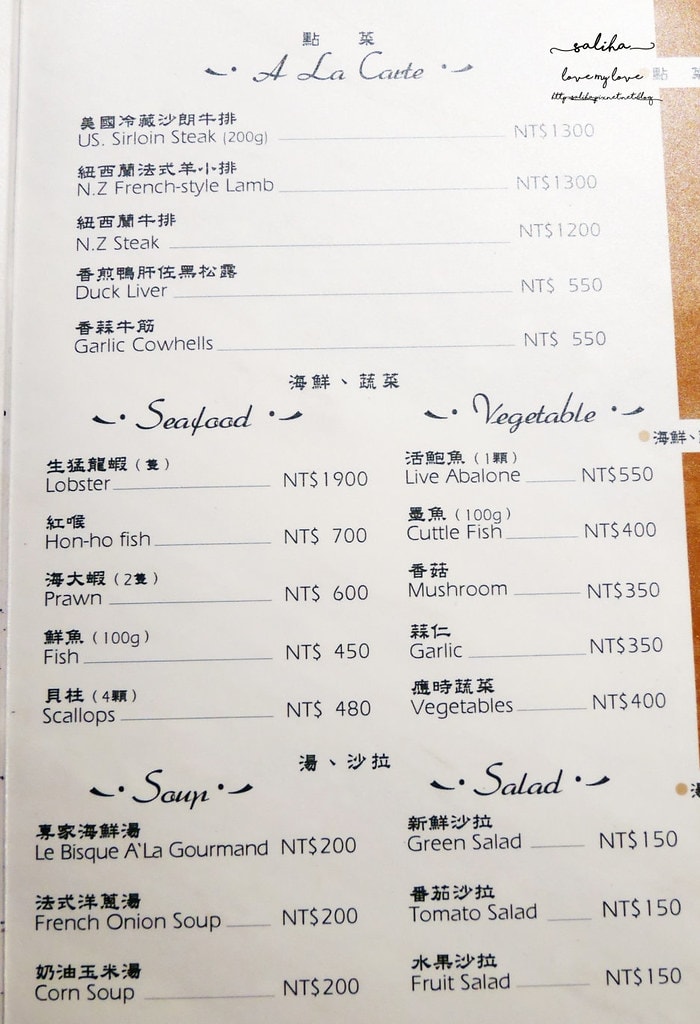 點 菜
A La Carte
saliha
love my love
點 菜
美國冷藏沙朗牛排
US. Sirloin Steak (200g) NT$1300
紐西蘭法式羊小排
N.Z French-style Lamb NT$1300
紐西蘭牛排
N.Z Steak NT$1200
香煎鴨肝佐黑松露
Duck Liver NT$ 550
香蒜牛筋
Garlic Cowhells NT$ 550
海鮮、蔬菜
Seafood
Vegetable
海鮮、
生猛龍蝦(隻)
Lobster NT$1900
紅喉
Hon-ho fish NT$ 700
海大蝦(2隻)
Prawn NT$ 600
鮮魚(100g)
Fish NT$ 450
貝柱(4顆)
Scallops NT$ 480
活鮑魚(1顆)
Live Abalone NT$550
墨魚(100g)
Cuttle Fish NT$400
香菇
Mushroom NT$350
蒜仁
Garlic NT$350
應時蔬菜
Vegetables NT$400
湯、沙拉
Soup
Salad
專家海鮮湯
Le Bisque A`La Gourmand NT$200
法式洋蔥湯
French Onion Soup NT$200
奶油玉米湯
Corn Soup NT$200
新鮮沙拉
Green Salad NT$150
番茄沙拉
Tomato Salad NT$150
水果沙拉
Fruit Salad NT$150